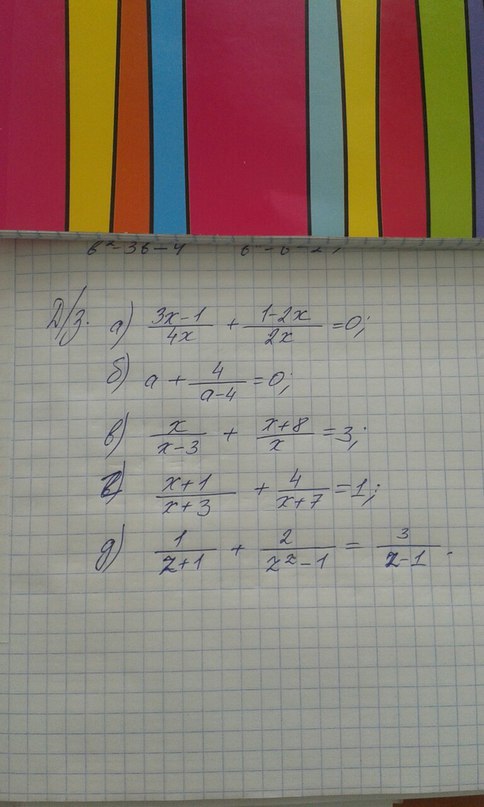 Д/з. а) (3x-1)/(4x) + (1-2x)/(2x) = 0;
б) a + 4/(a-4) = 0;
в) x/(x-3) + (x+8)/x = 3;
(x+1)/(x+3) + 4/(x+7) = 1;
д) 1/(z+1) + 2/(z²-1) = 3/(z-1).